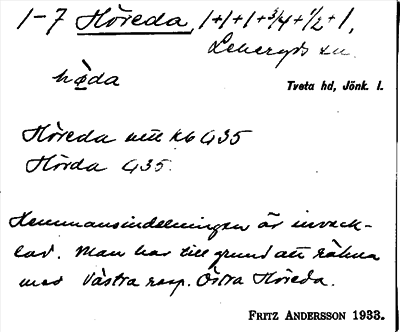 1-7 Höreda, 1+1+1+3/4+1/2+1,
Lekeryds sn.
hø̀da
Tveta hd, Jönk. l.
Höreda nitt kb G35
Hörda G35.
Hemmansindelningen är inveck-
lad. Man har till grund att räkna
med Västra resp. Östra Höreda.
FRITZ ANDERSSON 1933.